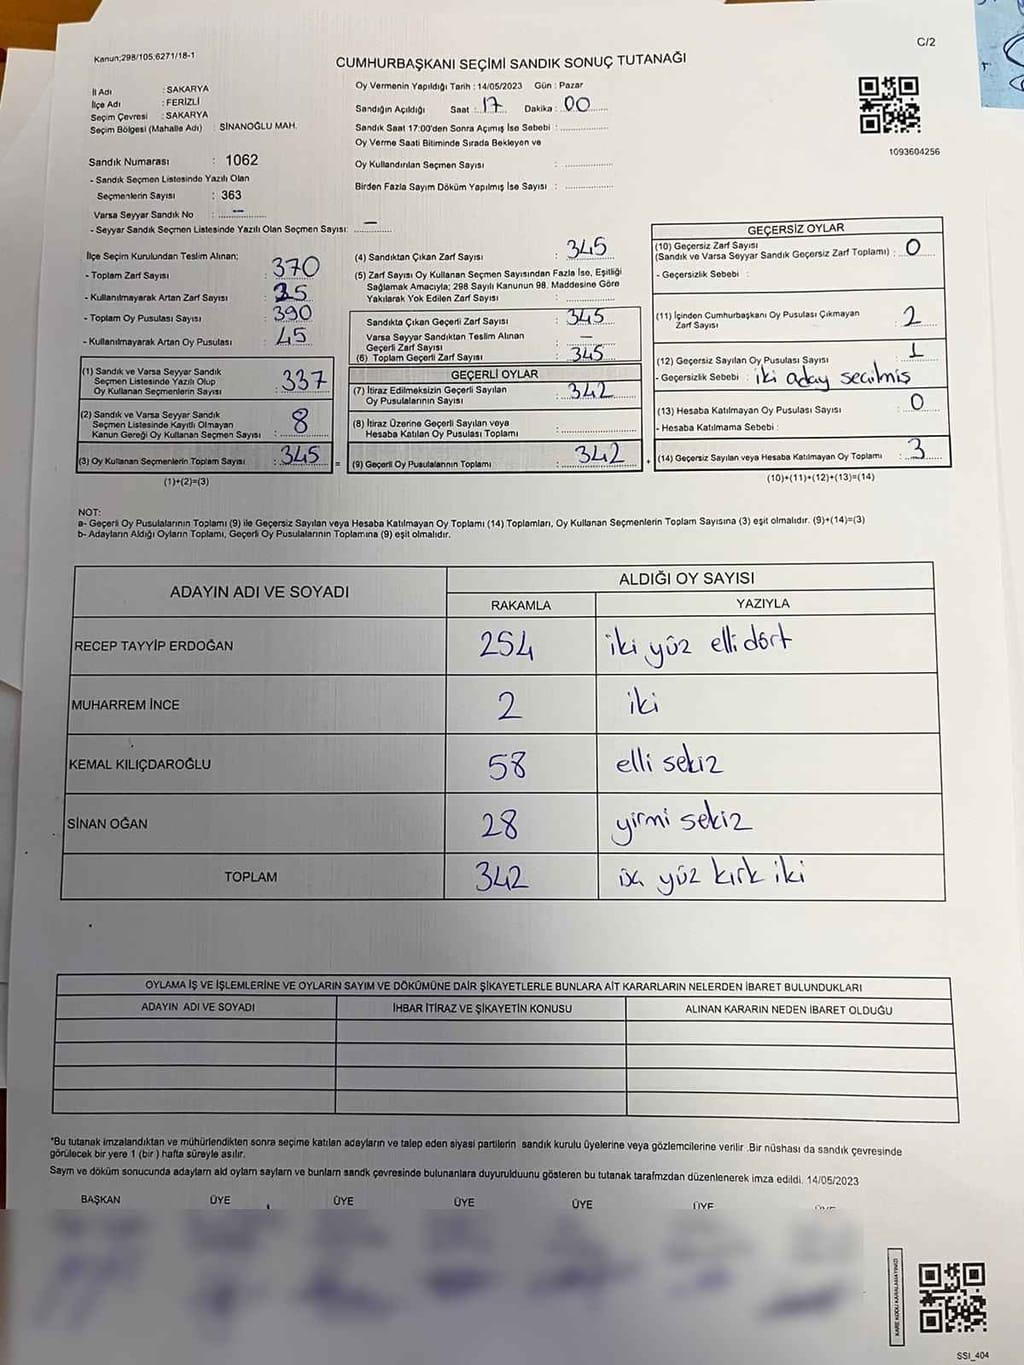 C/2
Kanun;298/105;6271/18-1
CUMHURBAŞKANI SEÇİMİ SANDIK SONUÇ TUTANAĞI
İl Adı : SAKARYA
İlçe Adı : FERİZLİ
Seçim Çevresi : SAKARYA
Seçim Bölgesi (Mahalle Adı) : SİNANOĞLU MAH.
Sandık Numarası : 1062
- Sandık Seçmen Listesinde Yazılı Olan
Seçmenlerin Sayısı : 363
Varsa Seyyar Sandık No : –
- Seyyar Sandık Seçmen Listesinde Yazılı Olan Seçmen Sayısı: –
Oy Vermenin Yapıldığı Tarih : 14/05/2023 Gün : Pazar
Sandığın Açıldığı Saat : 17 Dakika : 00
Sandık Saat 17:00'den Sonra Açımış İse Sebebi : ..............
Oy Verme Saati Bitiminde Sırada Bekleyen ve
Oy Kullandırılan Seçmen Sayısı : ..............
Birden Fazla Sayım Döküm Yapılmış İse Sayısı : ..............
1093604256
İlçe Seçim Kurulundan Teslim Alınan;
- Toplam Zarf Sayısı : 370
- Kullanılmayarak Artan Zarf Sayısı : 25
- Toplam Oy Pusulası Sayısı : 390
- Kullanılmayarak Artan Oy Pusulası : 45
(1) Sandık ve Varsa Seyyar Sandık
Seçmen Listesinde Yazılı Olup
Oy Kullanan Seçmenlerin Sayısı : 337
(2) Sandık ve Varsa Seyyar Sandık
Seçmen Listesinde Kayıtlı Olmayan
Kanun Gereği Oy Kullanan Seçmen Sayısı : 8
(3) Oy Kullanan Seçmenlerin Toplam Sayısı : 345
(1)+(2)=(3)
(4) Sandıktan Çıkan Zarf Sayısı : 345
(5) Zarf Sayısı Oy Kullanan Seçmen Sayısından Fazla İse, Eşitliği
Sağlamak Amacıyla; 298 Sayılı Kanunun 98. Maddesine Göre
Yakılarak Yok Edilen Zarf Sayısı : ..............
Sandıkta Çıkan Geçerli Zarf Sayısı : 345
Varsa Seyyar Sandıktan Teslim Alınan
Geçerli Zarf Sayısı : –
(6) Toplam Geçerli Zarf Sayısı : 345
GEÇERLİ OYLAR
(7) İtiraz Edilmeksizin Geçerli Sayılan
Oy Pusulalarının Sayısı : 342
(8) İtiraz Üzerine Geçerli Sayılan veya
Hesaba Katılan Oy Pusulası Toplamı : ..............
= (9) Geçerli Oy Pusulalarının Toplamı : 342
GEÇERSİZ OYLAR
(10) Geçersiz Zarf Sayısı
(Sandık ve Varsa Seyyar Sandık Geçersiz Zarf Toplamı) : 0
- Geçersizlik Sebebi :
(11) İçinden Cumhurbaşkanı Oy Pusulası Çıkmayan
Zarf Sayısı : 2
(12) Geçersiz Sayılan Oy Pusulası Sayısı : 1
- Geçersizlik Sebebi : iki aday seçilmiş
(13) Hesaba Katılmayan Oy Pusulası Sayısı : 0
- Hesaba Katılmama Sebebi :
+ (14) Geçersiz Sayılan veya Hesaba Katılmayan Oy Toplamı : 3
(10)+(11)+(12)+(13)=(14)
NOT:
a- Geçerli Oy Pusulalarının Toplamı (9) ile Geçersiz Sayılan veya Hesaba Katılmayan Oy Toplamı (14) Toplamları, Oy Kullanan Seçmenlerin Toplam Sayısına (3) eşit olmalıdır. (9)+(14)=(3)
b- Adayların Aldığı Oyların Toplamı, Geçerli Oy Pusulalarının Toplamına (9) eşit olmalıdır.
ADAYIN ADI VE SOYADI ALDIĞI OY SAYISI
RAKAMLA YAZIYLA
RECEP TAYYİP ERDOĞAN 254 iki yüz elli dört
MUHARREM İNCE 2 iki
KEMAL KILIÇDAROĞLU 58 elli sekiz
SİNAN OĞAN 28 yirmi sekiz
TOPLAM 342 yüz kırk iki
OYLAMA İŞ VE İŞLEMLERİNE VE OYLARIN SAYIM VE DÖKÜMÜNE DAİR ŞİKAYETLERLE BUNLARA AİT KARARLARIN NELERDEN İBARET BULUNDUKLARI
ADAYIN ADI VE SOYADI İHBAR İTİRAZ VE ŞİKAYETİN KONUSU ALINAN KARARIN NEDEN İBARET OLDUĞU
*Bu tutanak imzalandıktan ve mühürlendikten sonra seçime katılan adayların ve talep eden siyasi partilerin sandık kurulu üyelerine veya gözlemcilerine verilir .Bir nüshası da sandık çevresinde
görülecek bir yere 1 (bir ) hafta süreyle asılır.
Saym ve döküm sonucunda adaylarn ald oylarn saylarn ve bunlarn sandk çevresinde bulunanlara duyurulduunu gösteren bu tutanak tarafmzdan düzenlenerek imza edildi. 14/05/2023
BAŞKAN ÜYE ÜYE ÜYE ÜYE ÜYE
KARE KODU KARALAMAYINIZ!
SSI_404